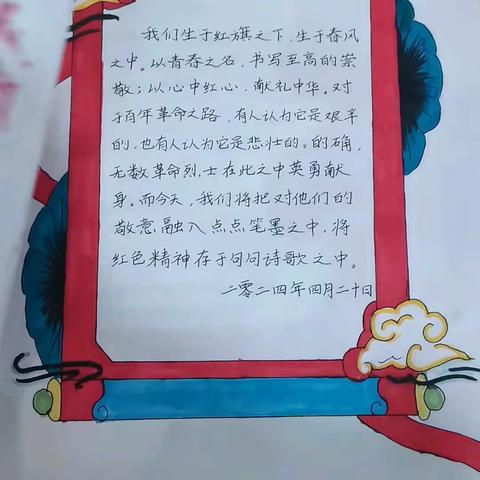 我们生于红旗之下,生于春风
之中。以青春之名,书写至高的崇
敬;以心中红心,献礼中华。对
于百年革命之路,有人认为它是艰辛
的,也有人认为它是悲壮的。的确,
无数革命烈士在此之中英勇献
身。而今天,我们将把对他们的
敬意融入点点笔墨之中,将
红色精神存于句句诗歌之中。
二零二四年四月二十日